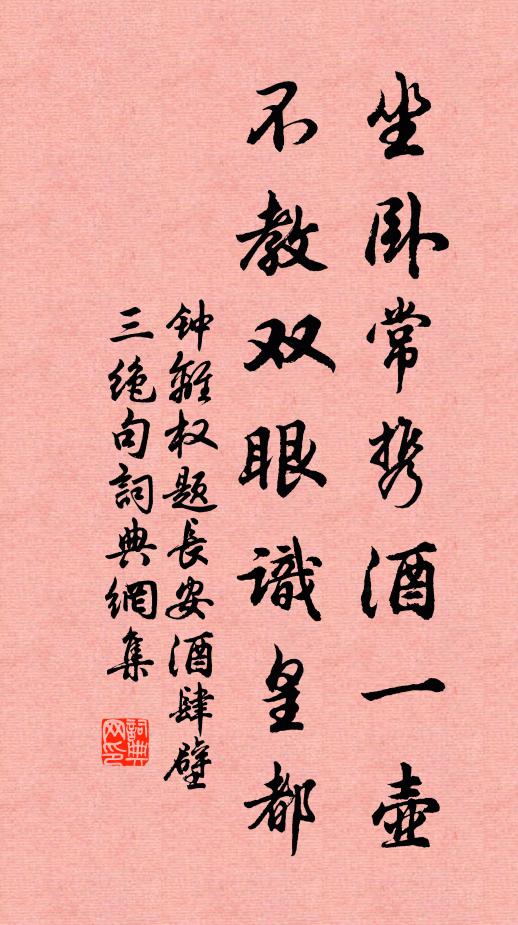 坐卧常携酒一壶
不教双眼識皇都
钟離权题長安酒肆壁
三绝句詞典網集
詞典網印